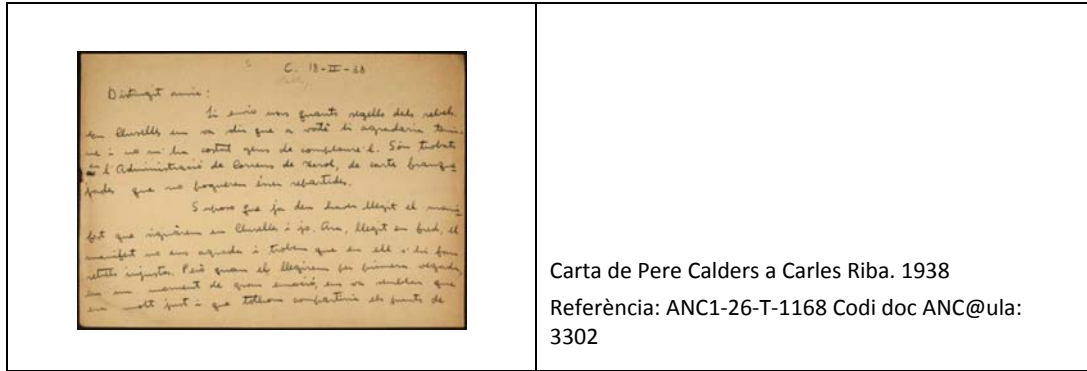 C. 18-II-38
Distingit amic:
Li envio uns quants segells dels rebels.
En Cluselles em va dir que a vostè li agradaria tenir-
ne i no m'ha costat gens de complaure'l. Són trobats
a l'Administració de Correus de Terol, de cartes franque-
jades que no pogueren ésser repartides.
Suposo que ja deu haver llegit el mani-
fest que signàrem en Cluselles i jo. Ara, llegit en fred, el
manifest no ens agrada i trobem que en ell hi fem
retrets injustos. Però quan el llegírem per primera vegada,
en un moment de gran emoció, ens va semblar que
era molt just i que tothom compartiria els punts de
Carta de Pere Calders a Carles Riba. 1938
Referència: ANC1-26-T-1168 Codi doc ANC@ula:
3302